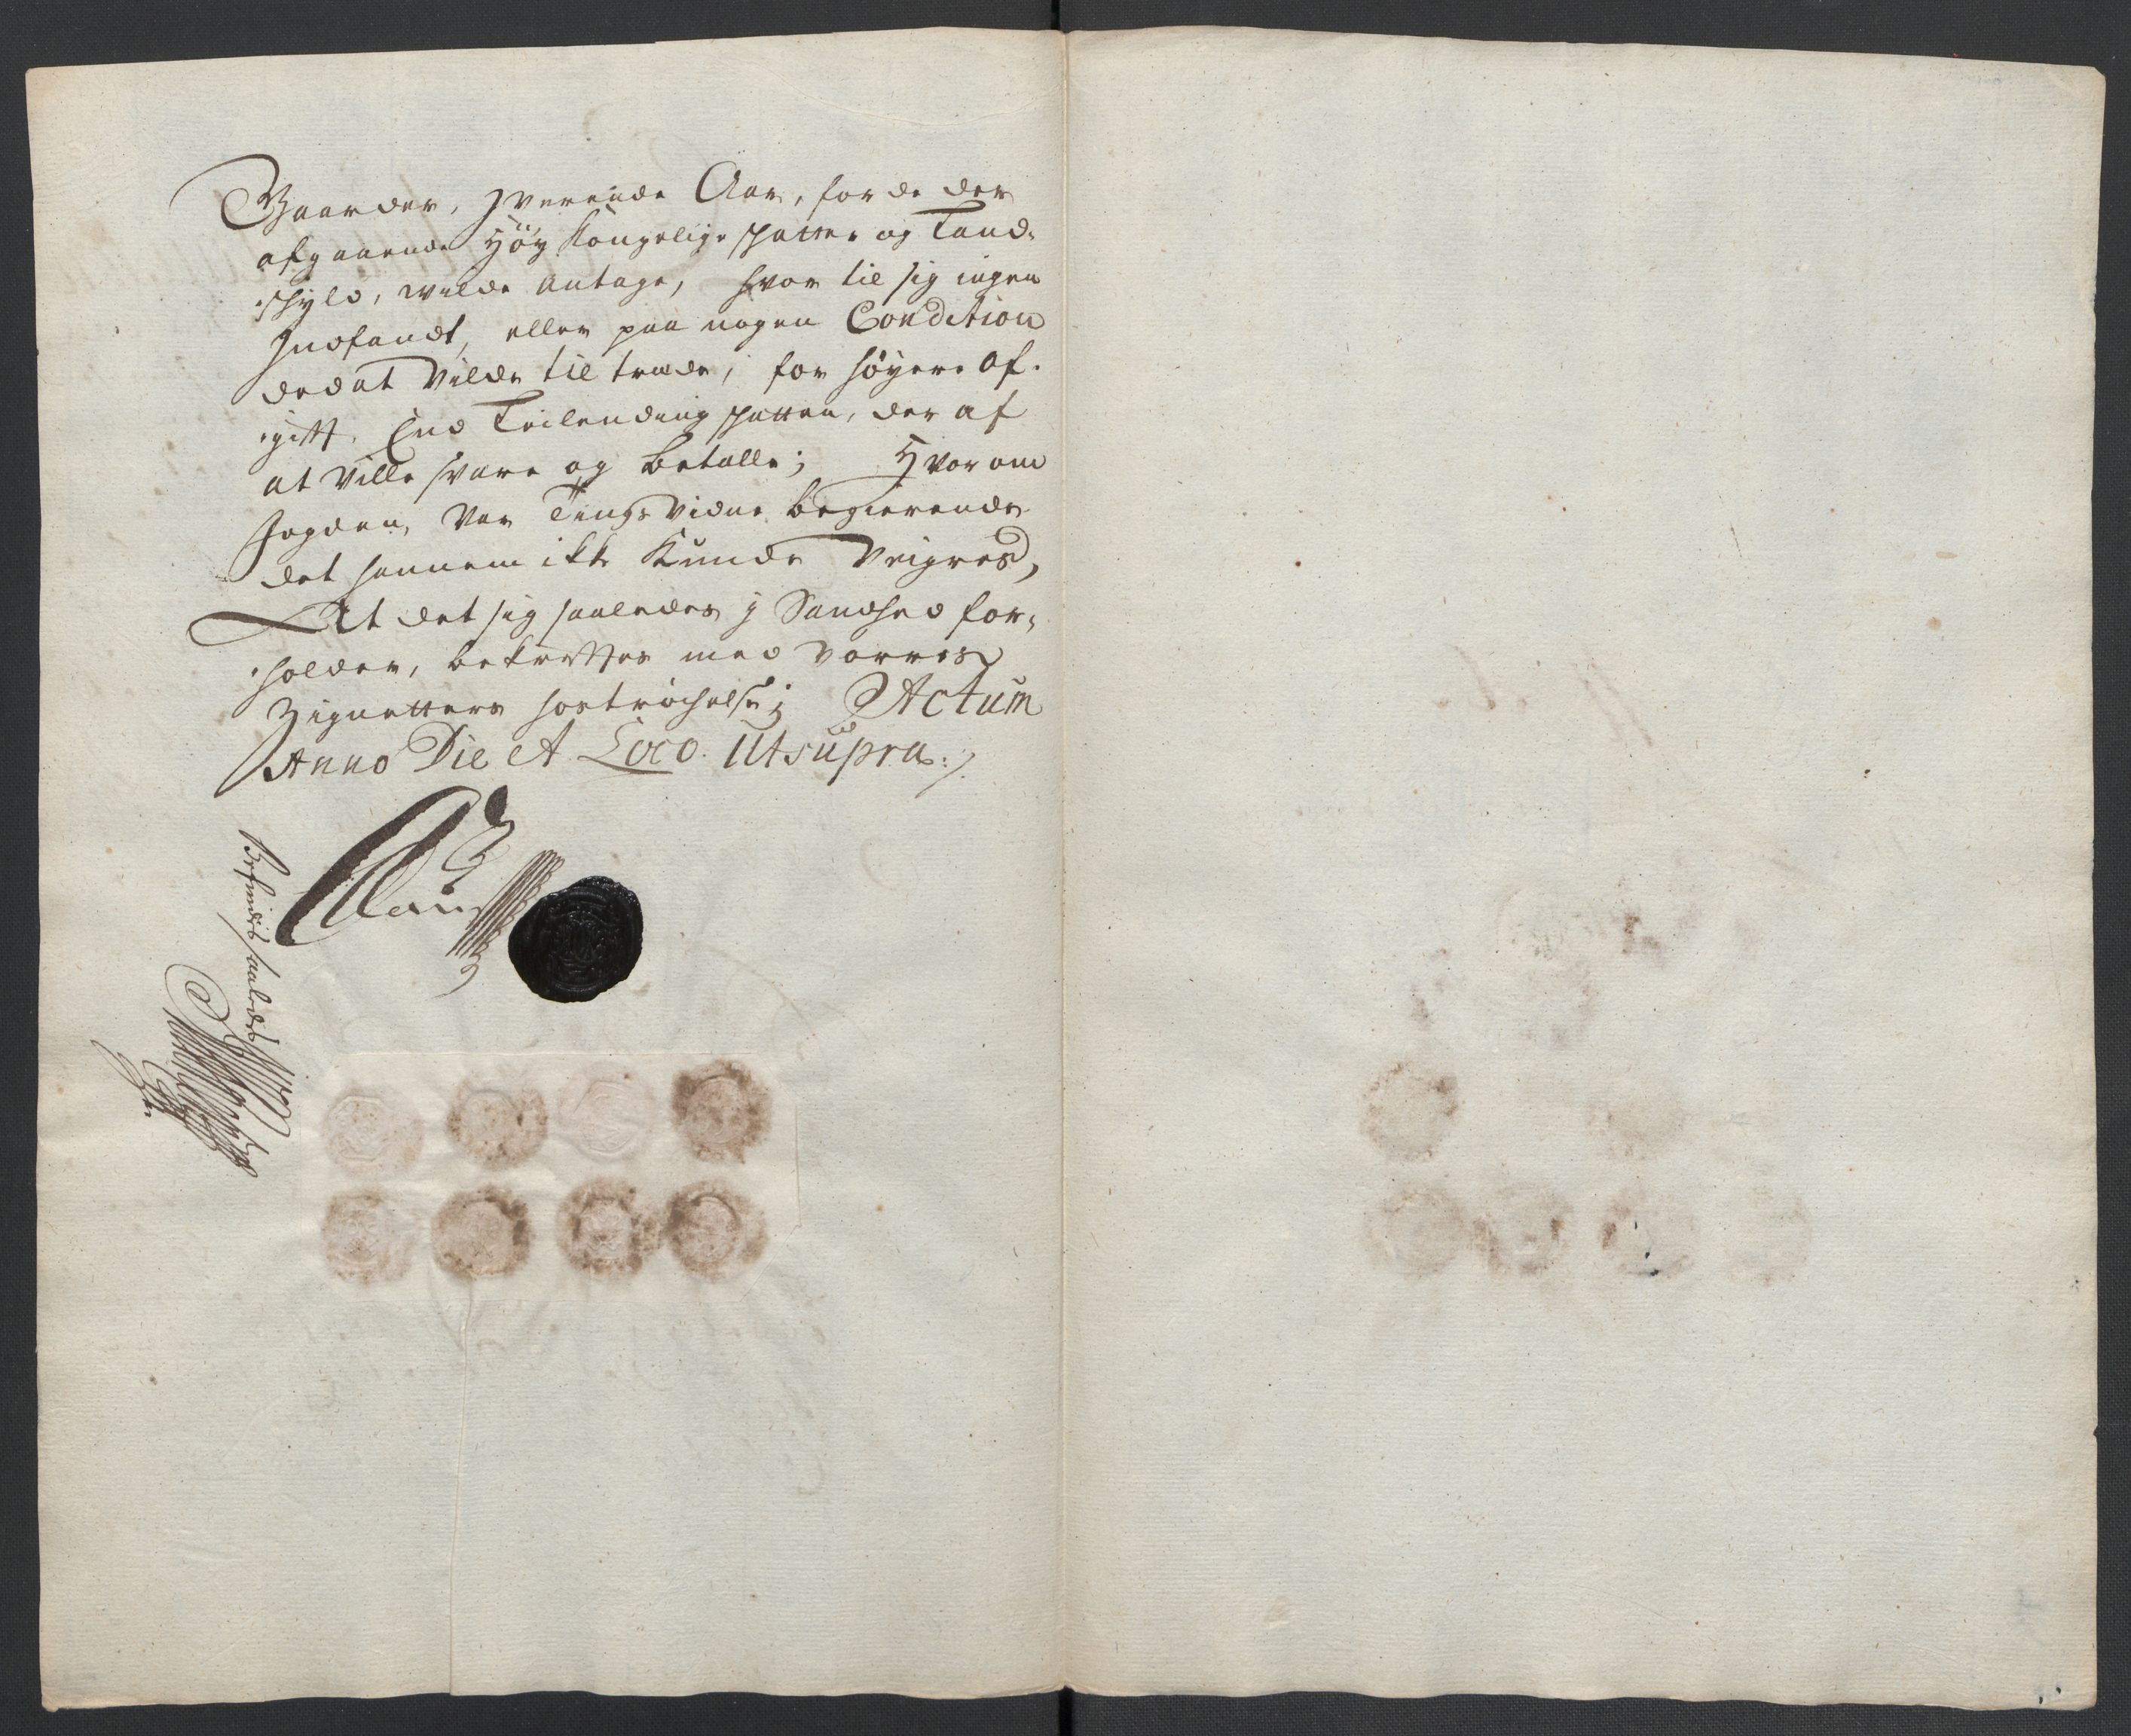 Gaarder, Jverende Aar, for de der
afgaaende Høy Kongelige schatter og Land-
schyld, wilde Antage, hvor til sig ingen
Jndfandt, eller paa nogen Condition
ded at Vilde til træde, for høyere Af-
gifft, End Leilending schatten, der af
at Ville svare og betalle; Hvor om
fogden, Var Tings Vidne begierende
det hannem ikke Kunde Veigres,
At det sig saaledes j Sandhed for-
holder, bekreffter med Vorres
Zignetters hoströchelse; Actum
Anno Die et Loco Utsupra
Befindis saaledes